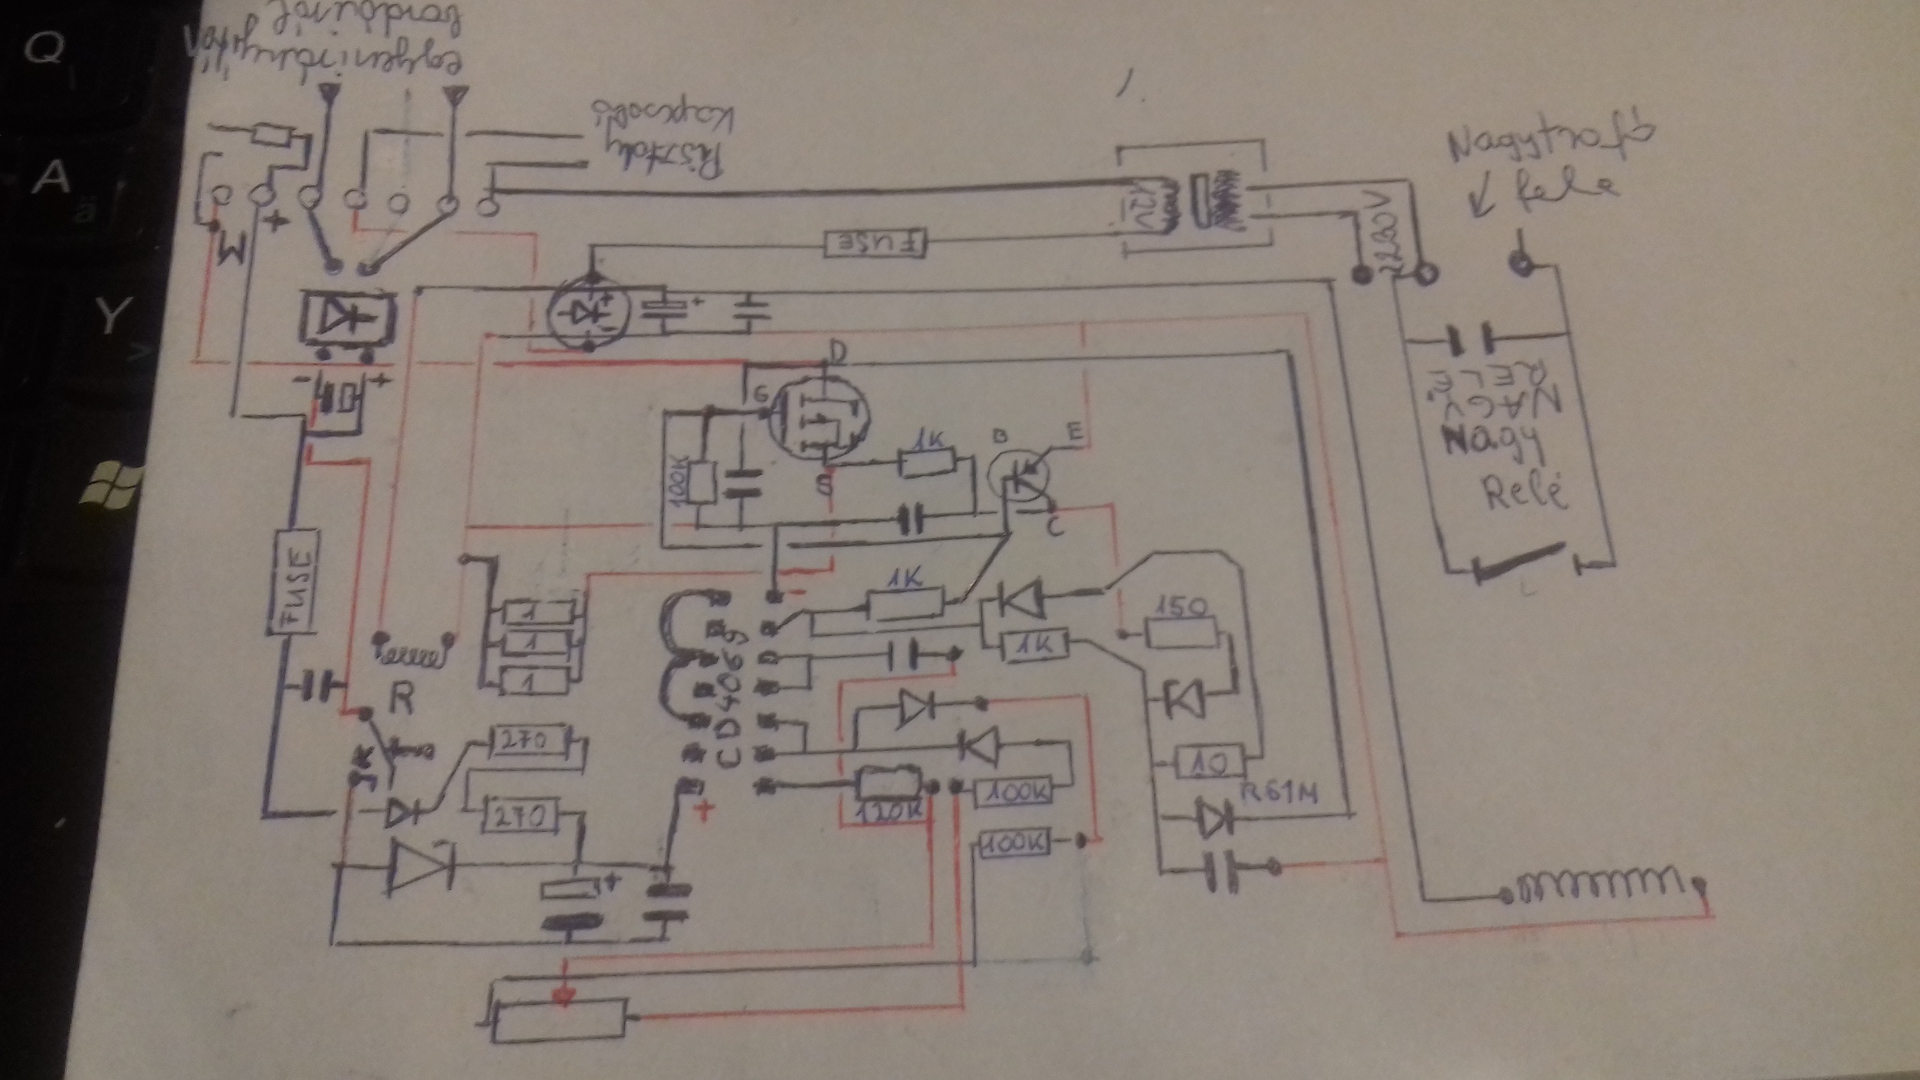 Q
A
ä
Y
egyenirányitó
bordáiról
Pisztoly
kapcsoló
Nagytrafó
fele
12V
230V
FUSE
M
+
+
-
+
-
+
D
G
S
1K
B
E
C
100K
NAGY
RELÉ
Nagy
Relé
FUSE
1K
-
1
1
1
1K
150
CD4069
R
270
270
120K
100K
10
R61M
100K
+
+